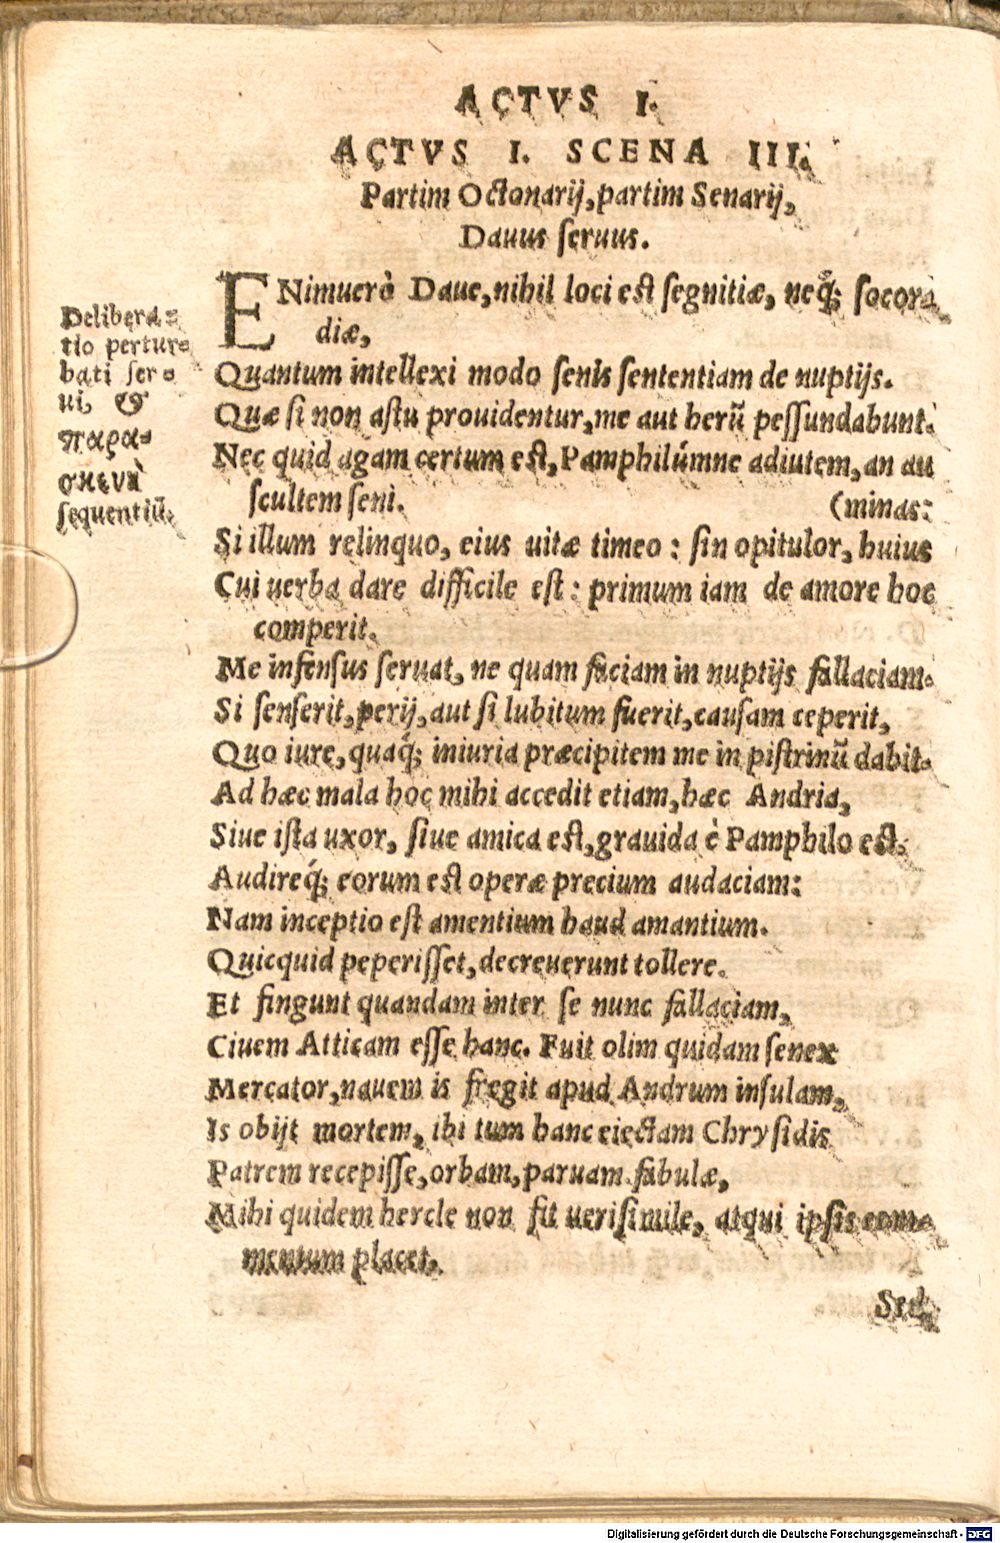 ACTVS I.
ACTVS I. SCENA III.
Partim Octonarij, partim Senarij,
Dauus seruus.
ENimuerò Daue, nihil loci est segnitiæ, neq́; socor=
diæ,
Quantum intellexi modo senis sententiam de nuptijs.
Quæ si non astu prouidentur, me aut herũ pessundabunt.
Nec quid agam certum est, Pamphilúmne adiutem, an au
scultem seni. (minas:
Si illum relinquo, eius uitæ timeo: sin opitulor, huius
Cui uerba dare difficile est: primum iam de amore hoc
comperit.
Me infensus seruat, ne quam faciam in nuptijs fallaciam.
Si senserit, perij, aut si lubitum fuerit, causam ceperit,
Quo iure, quaq́; iniuria præcipitem me in pistrinũ dabit.
Ad hæc mala hoc mihi accedit etiam, hæc Andria,
Siue ista uxor, siue amica est, grauida è Pamphilo est.
Audireq́; eorum est operæ precium audaciam:
Nam inceptio est amentium haud amantium.
Quicquid peperisset, decreuerunt tollere.
Et fingunt quandam inter se nunc fallaciam,
Ciuem Atticam esse hanc. Fuit olim quidam senex
Mercator, nauem is fregit apud Andrum insulam,
Is obijt mortem, ibi tum hanc eiectam Chrysidis
Patrem recepisse, orbam, paruam. fabulæ,
Mihi quidem hercle non fit uerisimile, atqui ipsis com=
mentum placet.
Sed
Delibera=
tio pertur=
bati ser=
ui, &
παρα=
σκευὴ
sequentiũ.
Digitalisierung gefördert durch die Deutsche Forschungsgemeinschaft - DFG